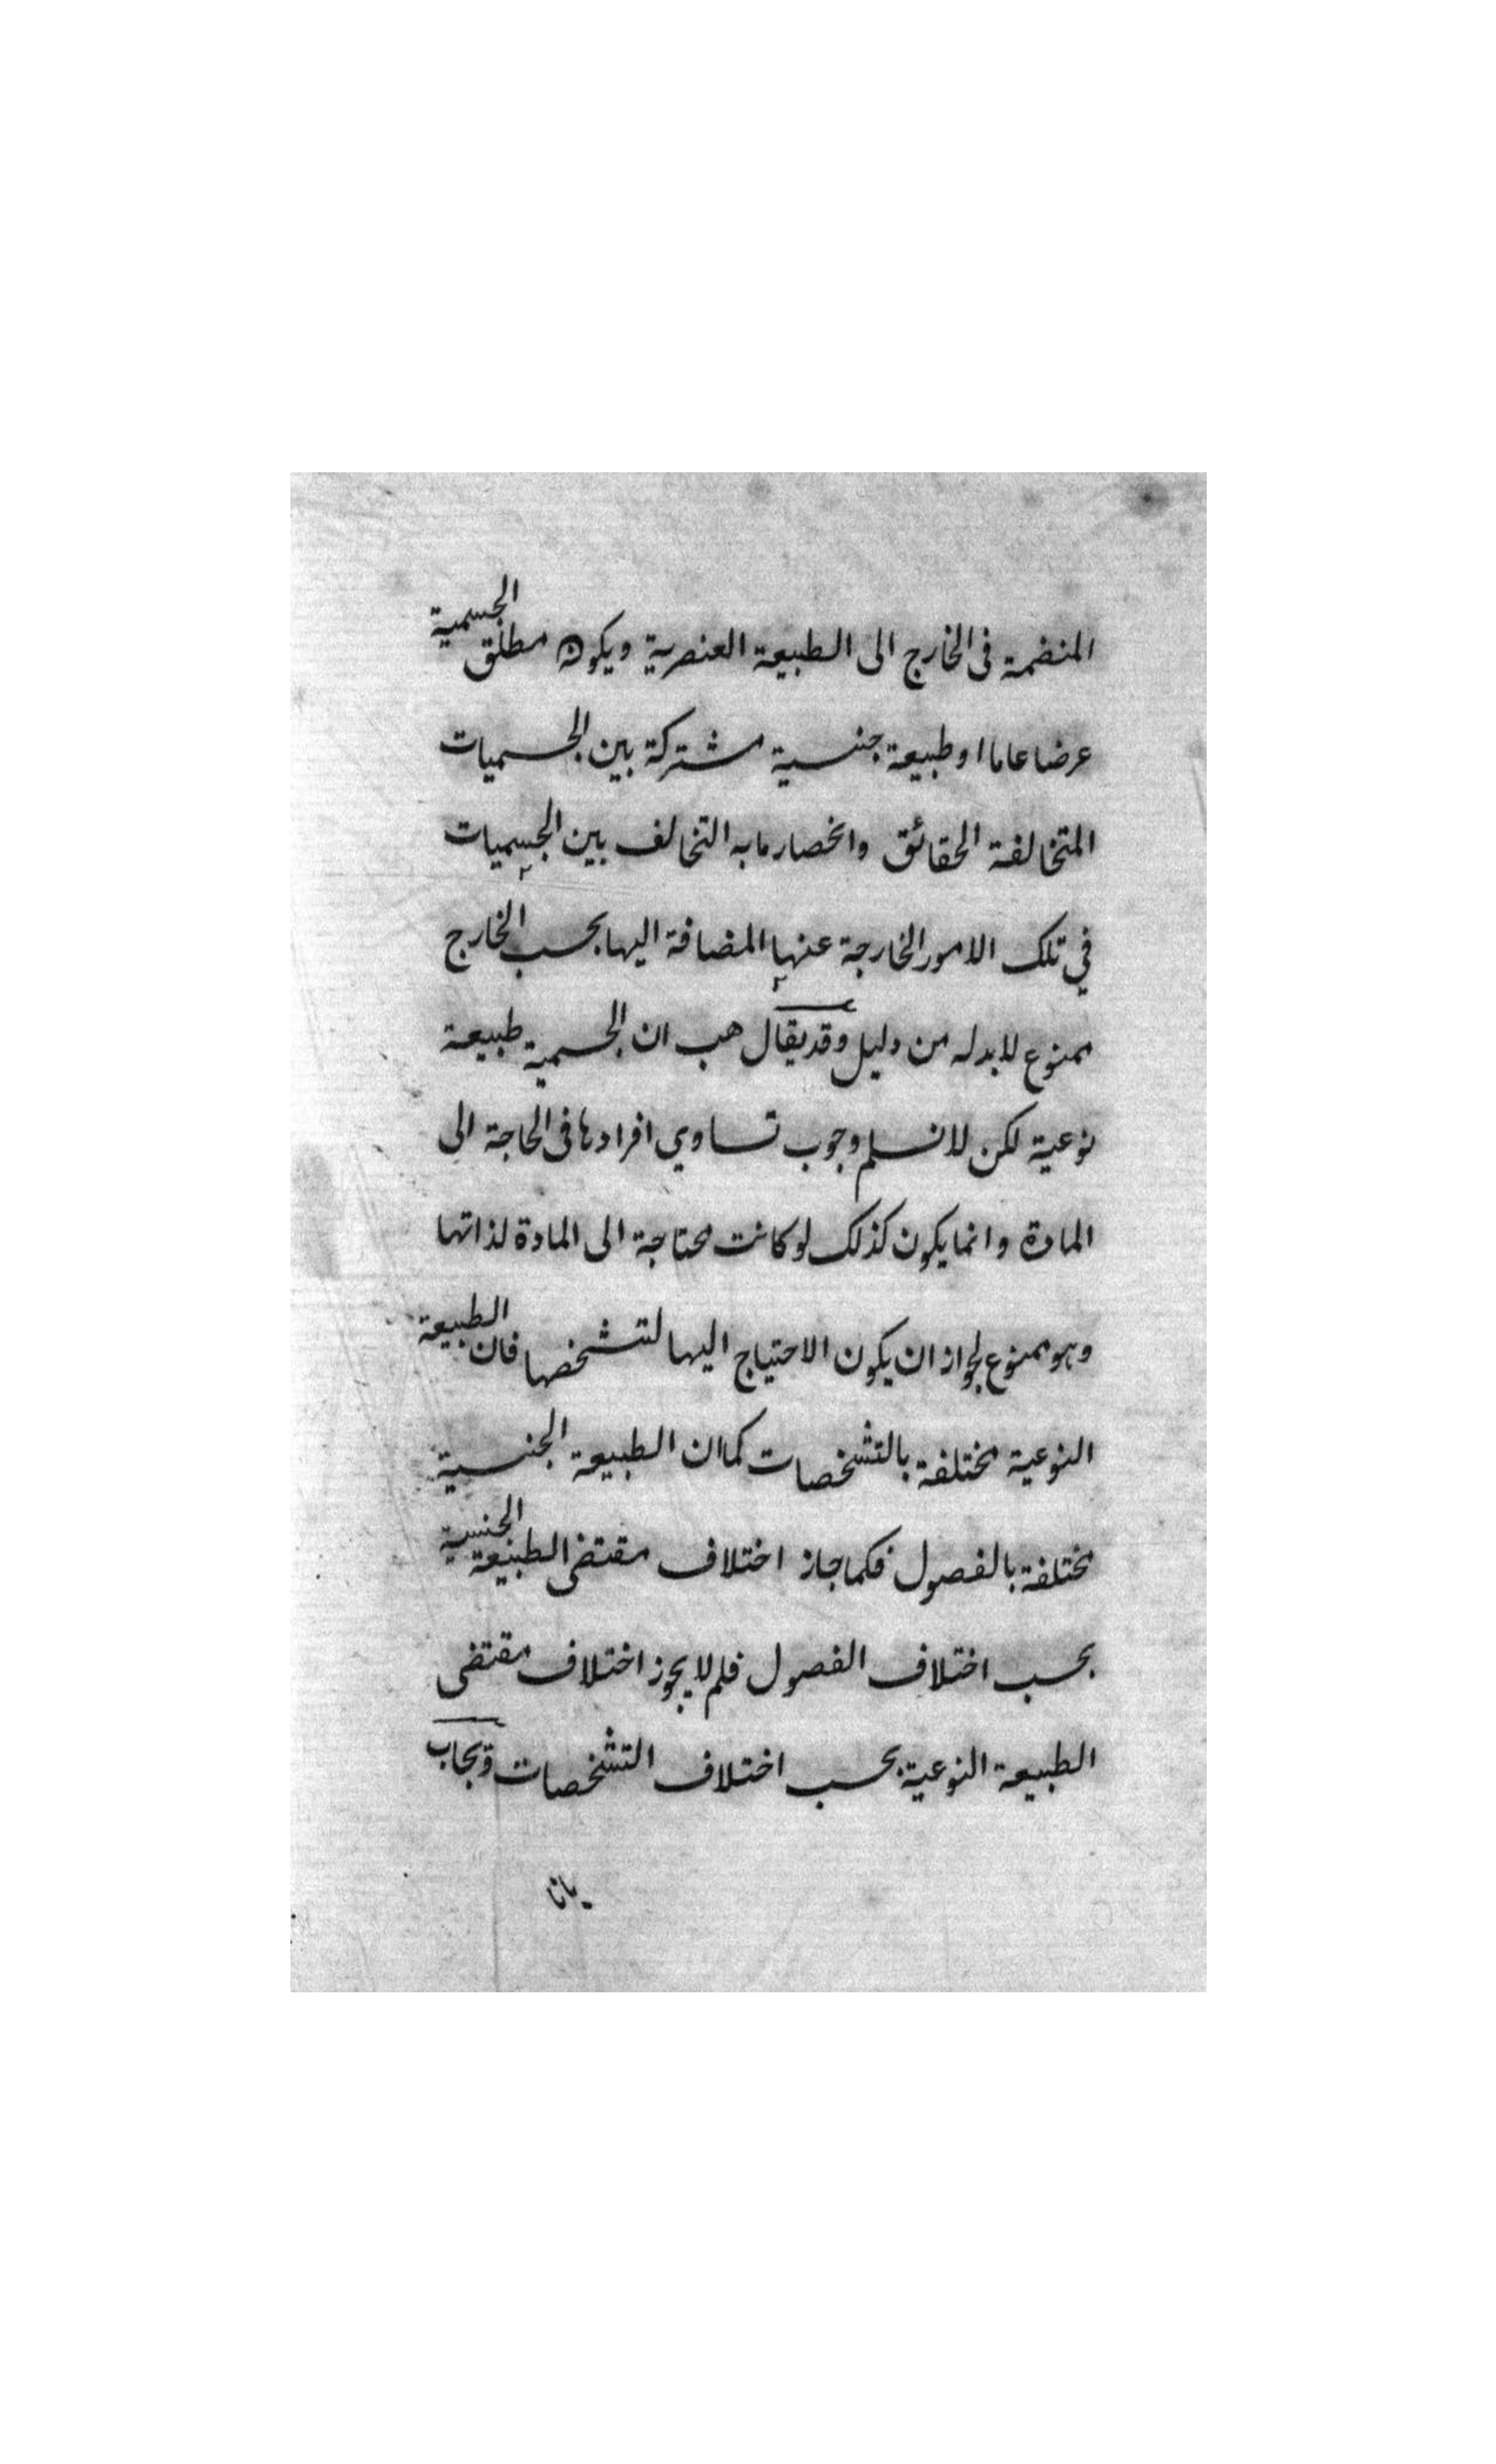 المنضمة فى الخارج الى الطبيعة العنصرية ويكون مطلق الجسمية
عرضا عاما او طبيعة جنسية مشتركة بين الجسميات
المتخالفة الحقائق وانحصار ما به التخالف بين الجسميات
في تلك الامور الخارجة عنها المضافة اليها بحسب الخارج
ممنوع لا بد له من دليل وقد يقال هب ان الجسمية طبيعة
نوعية لكن لا نسلم وجوب تساوي افرادها فى الحاجة الى
المادة وانما يكون كذلك لو كانت محتاجة الى المادة لذاتها
وهو ممنوع لجواز ان يكون الاحتياج اليها لتشخصها فان الطبيعة
النوعية مختلفة بالتشخصات كما ان الطبيعة الجنسية
مختلفة بالفصول فكما جاز اختلاف مقتضى الطبيعة الجنسية
بحسب اختلاف الفصول فلم لا يجوز اختلاف مقتضى
الطبيعة النوعية بحسب اختلاف التشخصات ويجاب
بانا